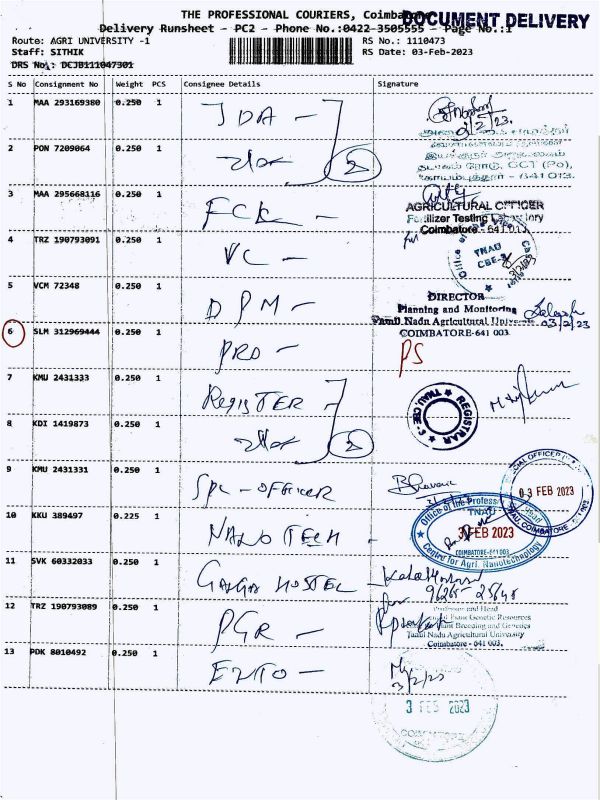 THE PROFESSIONAL COURIERS, Coimbatore
DOCUMENT DELIVERY
Delivery Runsheet - PC2 - Phone No.:0422-3505555 - Page No.:1
Route: AGRI UNIVERSITY -1 RS No.: 1110473
Staff: SITHIK RS Date: 03-Feb-2023
DRS No.: DCJB111047301
S No Consignment No Weight PCS Consignee Details Signature
1 MAA 293169380 0.250 1 JDA -
9/2/23.
2 PON 7209064 0.250 1 2
GCT (PO),
- 641 013.
3 MAA 295668116 0.250 1 FCK -
AGRICULTURAL OFFICER
Fertilizer Testing Laboratory
Coimbatore - 641 013
for
4 TRZ 190793091 0.250 1 VC -
Office of the
TNAU
CBE-3
5 VCM 72348 0.250 1 DPM -
DIRECTOR
Planning and Monitoring
Tamil Nadu Agricultural University
03/2/23
COIMBATORE-641 003
6 SLM 312969444 0.250 1 PRO -
PS
7 KMU 2431333 0.250 1 REGISTER -
REGISTRAR TNAU, CBE-3
8 KDI 1419873 0.250 1 2
9 KMU 2431331 0.250 1 SPL - OFFICER
Bhavani
03 FEB 2023
TNAU, COIMBATORE
10 KKU 389497 0.225 1 NANO TECH -
Office of the Professor & Head
TNAU
3 FEB 2023
COIMBATORE-641 003
Center for Agri. Nanotechnology
11 SVK 60332033 0.250 1 GANGA HOSTEL -
12 TRZ 190793089 0.250 1 PGR -
Professor and Head
Plant Genetic Resources
Plant Breeding and Genetics
Tamil Nadu Agricultural University
Coimbatore - 641 003.
13 PDK 8010492 0.250 1 ENTO -
3/2/23
3 FEB 2023
COIMBATORE